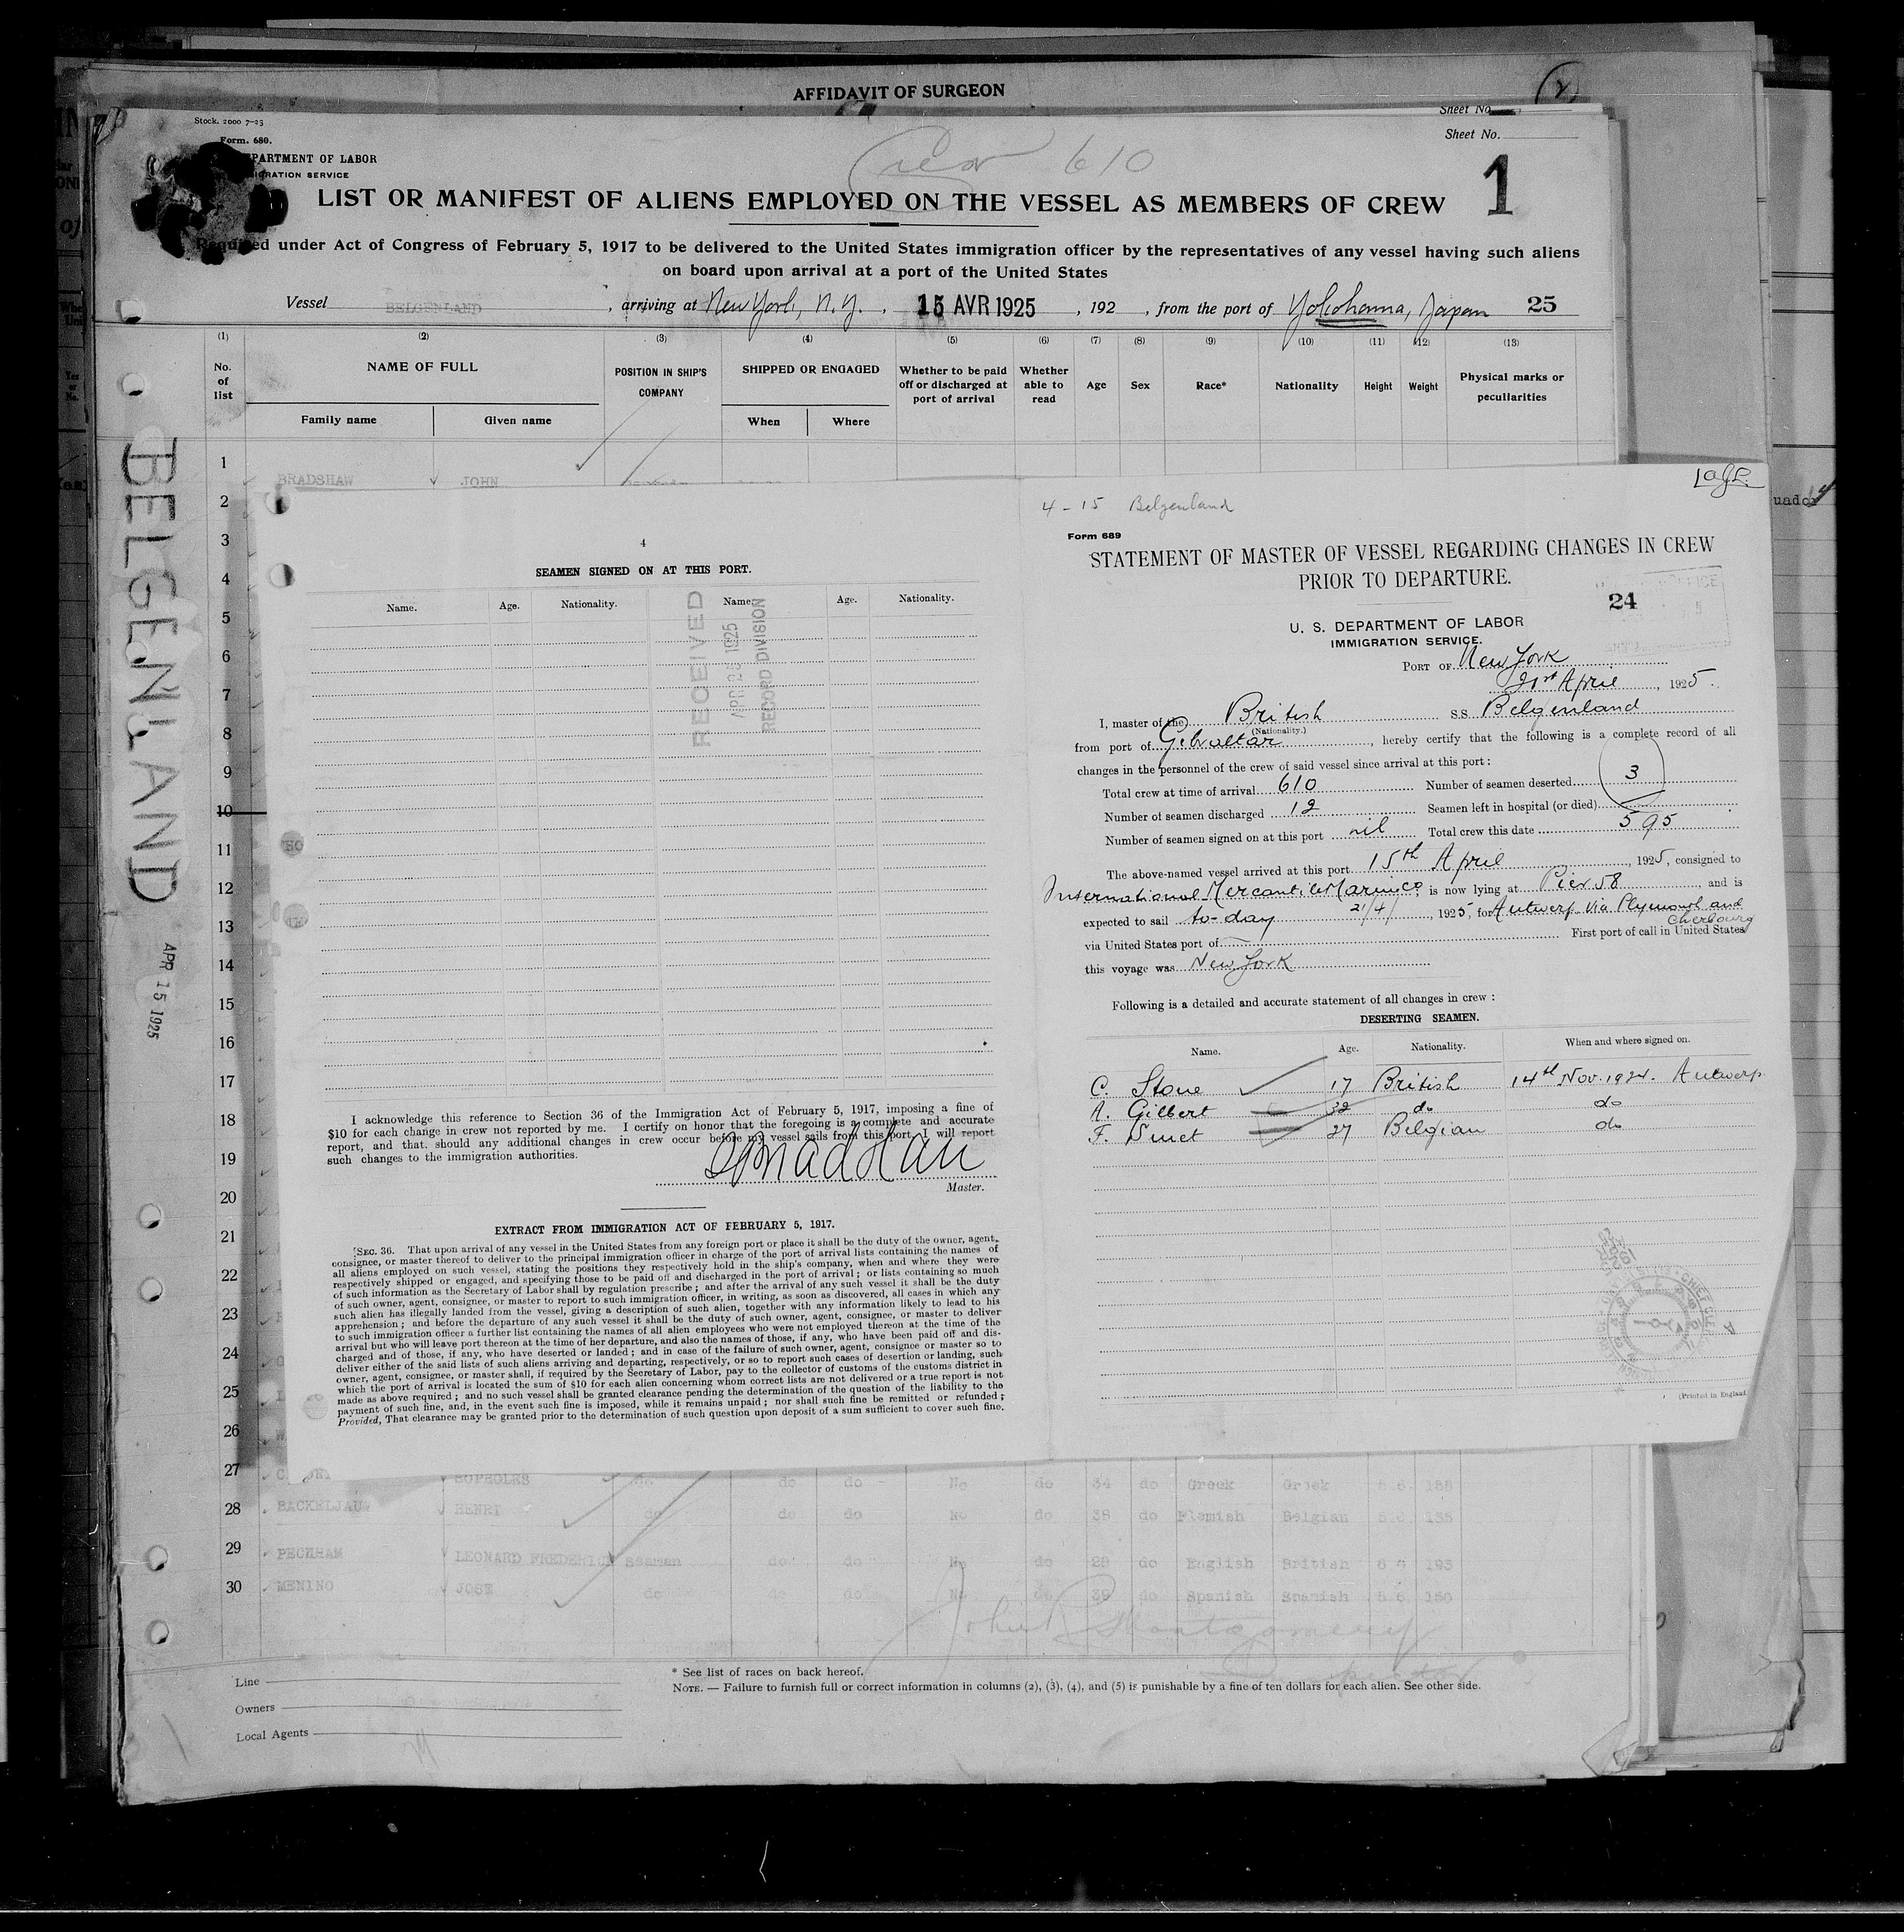 AFFIDAVIT OF SURGEON
Sheet No.
Sheet No.
Stock. 2000 7-23
Form. 680.
DEPARTMENT OF LABOR
IMMIGRATION SERVICE
Crew 610
1
LIST OR MANIFEST OF ALIENS EMPLOYED ON THE VESSEL AS MEMBERS OF CREW
Required under Act of Congress of February 5, 1917 to be delivered to the United States immigration officer by the representatives of any vessel having such aliens
on board upon arrival at a port of the United States
Vessel BELGENLAND , arriving at New York, N.Y. , 15 AVR 1925 , 192 , from the port of Yokohama, Japan 25
(1) (2) (3) (4) (5) (6) (7) (8) (9) (10) (11) (12) (13)
No. of list
NAME OF FULL
Family name
Given name
POSITION IN SHIP'S COMPANY
SHIPPED OR ENGAGED
When
Where
Whether to be paid off or discharged at port of arrival
Whether able to read
Age
Sex
Race*
Nationality
Height
Weight
Physical marks or peculiarities
1 BRADSHAW JOHN
2
3
4
5
6
7
8
9
10
11
12
13
14
15
16
17
18
19
20
21
22
23
24
25
26
BELGENLAND
APR 15 1925
4
SEAMEN SIGNED ON AT THIS PORT.
Name. Age. Nationality. Name. Age. Nationality.
RECEIVED
APR 23 1925
RECORD DIVISION
I acknowledge this reference to Section 36 of the Immigration Act of February 5, 1917, imposing a fine of
$10 for each change in crew not reported by me. I certify on honor that the foregoing is a complete and accurate
report, and that should any additional changes in crew occur before my vessel sails from this port I will report
such changes to the immigration authorities.
Master.
EXTRACT FROM IMMIGRATION ACT OF FEBRUARY 5, 1917.
SEC. 36. That upon arrival of any vessel in the United States from any foreign port or place it shall be the duty of the owner, agent,
consignee, or master thereof to deliver to the principal immigration officer in charge of the port of arrival lists containing the names of
all aliens employed on such vessel, stating the positions they respectively hold in the ship's company, when and where they were
respectively shipped or engaged, and specifying those to be paid off and discharged in the port of arrival; or lists containing so much
of such information as the Secretary of Labor shall by regulation prescribe; and after the arrival of any such vessel it shall be the duty
of such owner, agent, consignee, or master to report to such immigration officer, in writing, as soon as discovered, all cases in which any
such alien has illegally landed from the vessel, giving a description of such alien, together with any information likely to lead to his
apprehension; and before the departure of any such vessel it shall be the duty of such owner, agent, consignee, or master to deliver
to such immigration officer a further list containing the names of all alien employees who were not employed thereon at the time of the
arrival but who will leave port thereon at the time of her departure, and also the names of those, if any, who have been paid off and dis-
charged and of those, if any, who have deserted or landed; and in case of the failure of such owner, agent, consignee or master so to
deliver either of the said lists of such aliens arriving and departing, respectively, or so to report such cases of desertion or landing, such
owner, agent, consignee, or master shall, if required by the Secretary of Labor, pay to the collector of customs of the customs district in
which the port of arrival is located the sum of $10 for each alien concerning whom correct lists are not delivered or a true report is not
made as above required; and no such vessel shall be granted clearance pending the determination of the question of the liability to the
payment of such fine, and, in the event such fine is imposed, while it remains unpaid; nor shall such fine be remitted or refunded;
Provided, That clearance may be granted prior to the determination of such question upon deposit of a sum sufficient to cover such fine.
4-15 Belgenland
Form 689
STATEMENT OF MASTER OF VESSEL REGARDING CHANGES IN CREW
PRIOR TO DEPARTURE.
24
U. S. DEPARTMENT OF LABOR
IMMIGRATION SERVICE.
PORT OF New York
21st April , 1925.
I, master of the British S.S. Belgenland
(Nationality.)
from port of Gibraltar , hereby certify that the following is a complete record of all
changes in the personnel of the crew of said vessel since arrival at this port:
Total crew at time of arrival 610 Number of seamen deserted 3
Number of seamen discharged 12 Seamen left in hospital (or died)
Number of seamen signed on at this port nil Total crew this date 595
The above-named vessel arrived at this port 15th April , 1925, consigned to
International Mercantile Marine Co, is now lying at Pier 58 , and is
expected to sail to-day 21/4/ , 1925, for Antwerp via Plymouth and Cherbourg
via United States port of First port of call in United States
this voyage was New York
Following is a detailed and accurate statement of all changes in crew:
DESERTING SEAMEN.
Name. Age. Nationality. When and where signed on.
C. Stone 17 British 14th Nov. 1924. Antwerp
A. Gilbert 32 do do
F. 27 Belgian do
(Printed in England
27 SOPHOLES do do do No do 34 do Greek Greek 5.6. 188
28 BACKELJAUW HENRI do do do No do 38 do Flemish Belgian 155
29 PECKHAM LEONARD FREDERICK Seaman do do No do 28 do English British 193
30 MENINO JOSE do do do No do 39 do Spanish Spanish 5.6. 150
John R Montgomery
Inspector
Line
Owners
Local Agents
* See list of races on back hereof.
NOTE. — Failure to furnish full or correct information in columns (2), (3), (4), and (5) is punishable by a fine of ten dollars for each alien. See other side.